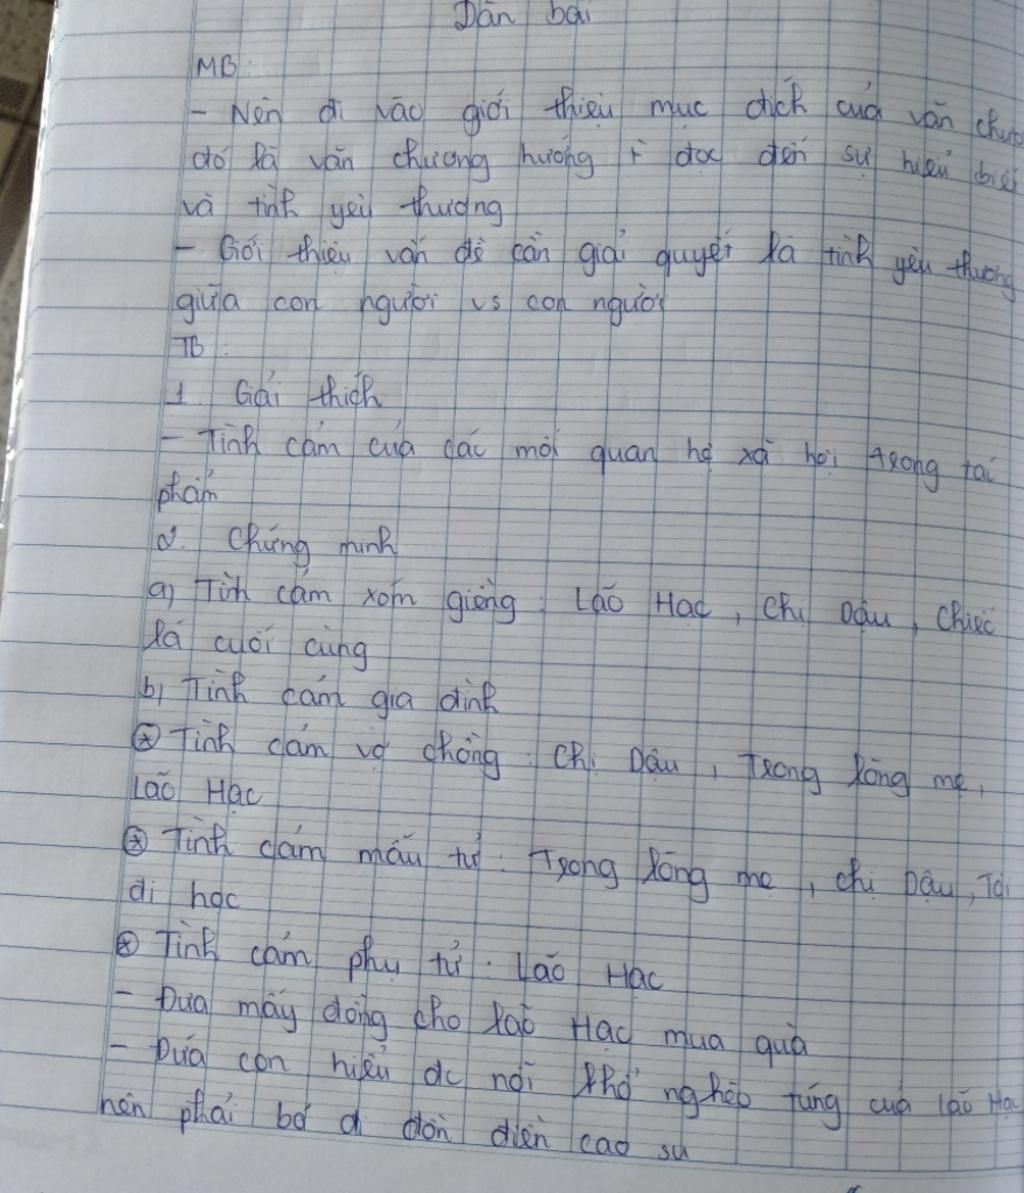 Dàn bài
MB:
- Nên đi vào giới thiệu mục đích của văn chươ
đó là văn chương hướng đọc đến sự hiểu biết
và tình yêu thương
- Gới thiệu vấn đề cần giải quyết là tình yêu thương
giữa con người vs con người
TB:
1. Gải thích
- Tình cảm của các mối quan hệ xã hội trong tác
phẩm
2. Chứng minh
a) Tình cảm xóm giềng: Lão Hạc, Chị Dậu, Chiếc
lá cuối cùng
b) Tình cảm gia đình
* Tình cảm vợ chồng: Chị Dậu, Trong lòng mẹ,
Lão Hạc
* Tình cảm mẫu tử: Trong lòng mẹ, chị Dậu, Tôi
đi học
* Tình cảm phụ tử: Lão Hạc
- Đưa mấy đồng cho lão Hạc mua quà
- Đứa con hiểu dc nỗi khổ nghèo túng của lão Hạ
nên phải bỏ đi đồn điền cao su